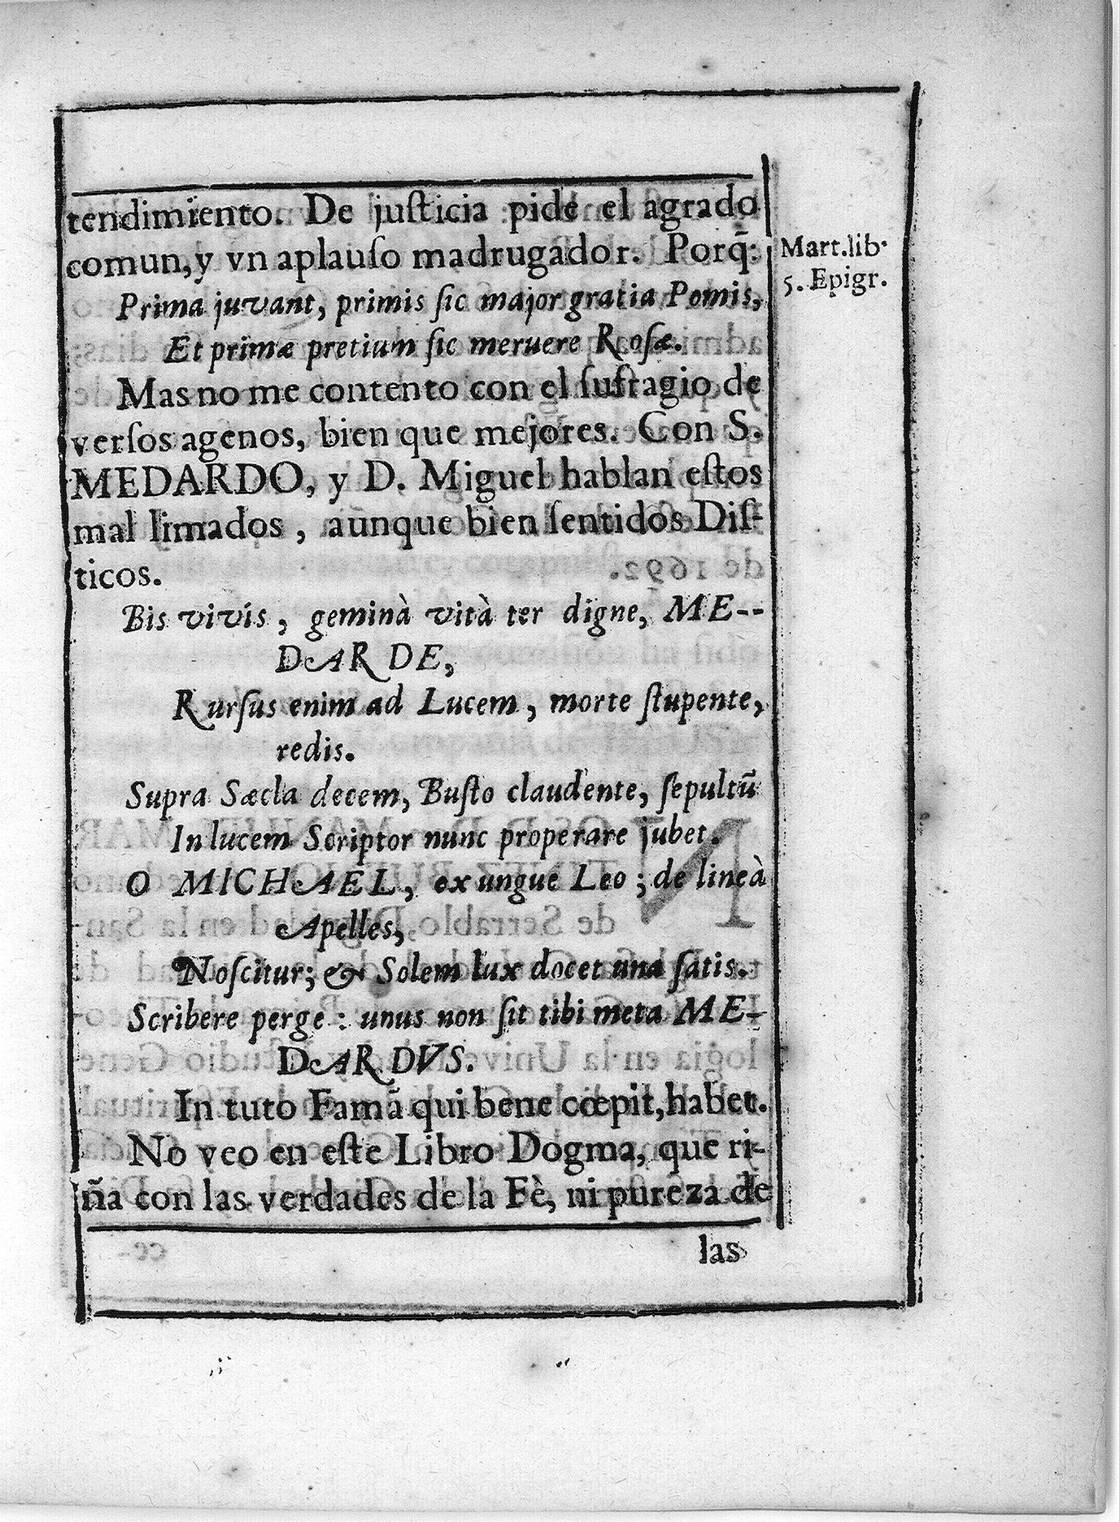 tendimiento. De justicia pide el agrado
comun, y vn aplauſo madrugador. Porq̃:
Mart. lib.
5. Epigr.
Prima juvant, primis ſic major gratia Pomis,
Et primæ pretium ſic meruere Roſæ.
Mas no me contento con el ſufragio de
verſos agenos, bien que mejores. Con S.
MEDARDO, y D. Miguel hablan eſtos
mal limados, aunque bien ſentidos Diſ-
ticos.
Bis vivis, geminà vità ter digne, ME--
DARDE,
Rurſus enim ad Lucem, morte ſtupente,
redis.
Supra Sæcla decem, Buſto claudente, ſepultũ
In lucem Scriptor nunc properare jubet.
O MICHAEL, ex ungue Leo; de lineà
Apelles,
Noſcitur; & Solem lux docet una ſatis.
Scribere perge: unus non ſit tibi meta ME-
DARDVS.
In tuto Famã qui bene cœpit, habet.
No veo en eſte Libro Dogma, que ri-
ña con las verdades de la Fè, ni pureza de
las